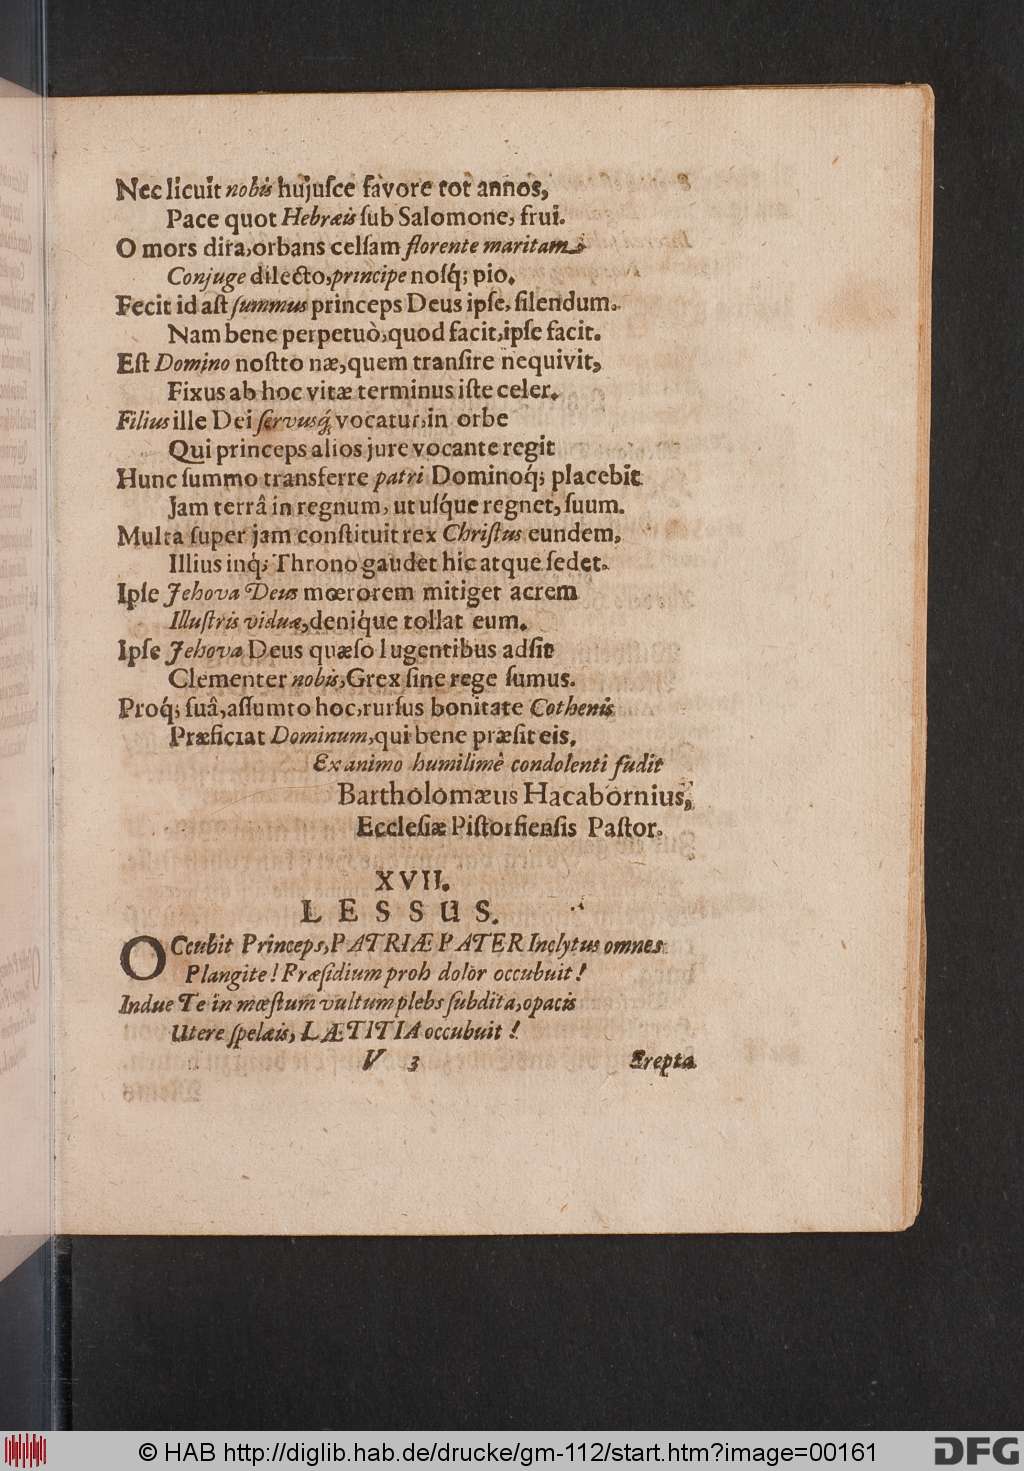 Nec licuit nobis hujuſce favore tot annos,
Pace quot Hebræis ſub Salomone, frui.
O mors dira, orbans celſam florente maritam
Conjuge dilecto, principe noſq́; pio.
Fecit id aſt ſummus princeps Deus ipſe, ſilendum.
Nam bene perpetuò, quod facit, ipſe facit.
Eſt Domino noſtto næ, quem tranſire nequivit,
Fixus ab hoc vitæ terminus iſte celer.
Filius ille Dei ſervusq́; vocatur, in orbe
Qui princeps alios jure vocante regit
Hunc ſummo transferre patri Dominoq́; placebit
Jam terrâ in regnum, ut uſq́ue regnet, ſuum.
Multa ſuper jam conſtituit rex Chriſtus eundem,
Illius inq́; Throno gaudet hic atque ſedet.
Ipſe Jehova Deus mœrorem mitiget acrem
Illuſtris viduæ, deniq́ue tollat eum.
Ipſe Jehova Deus quæſo lugentibus adſit
Clementer nobis, Grex ſine rege ſumus.
Proq́; ſuâ, aſſumto hoc, rurſus bonitate Cothenis
Præficiat Dominum, qui bene præſit eis.
Ex animo humilimè condolenti fudit
Bartholomæus Hacabornius,
Eccleſiæ Piſtorfienſis Paſtor.
XVII.
LESSUS.
OCcubit Princeps, PATRIÆ PATER Inclytus omnes
Plangite! Præſidium proh dolor occubuit!
Indue Te in mœſtum vultum plebs ſubdita, opacis
Utere ſpelæis, LÆTITIA occubuit!
V 3 Erepta
© HAB http://diglib.hab.de/drucke/gm-112/start.htm?image=00161
DFG